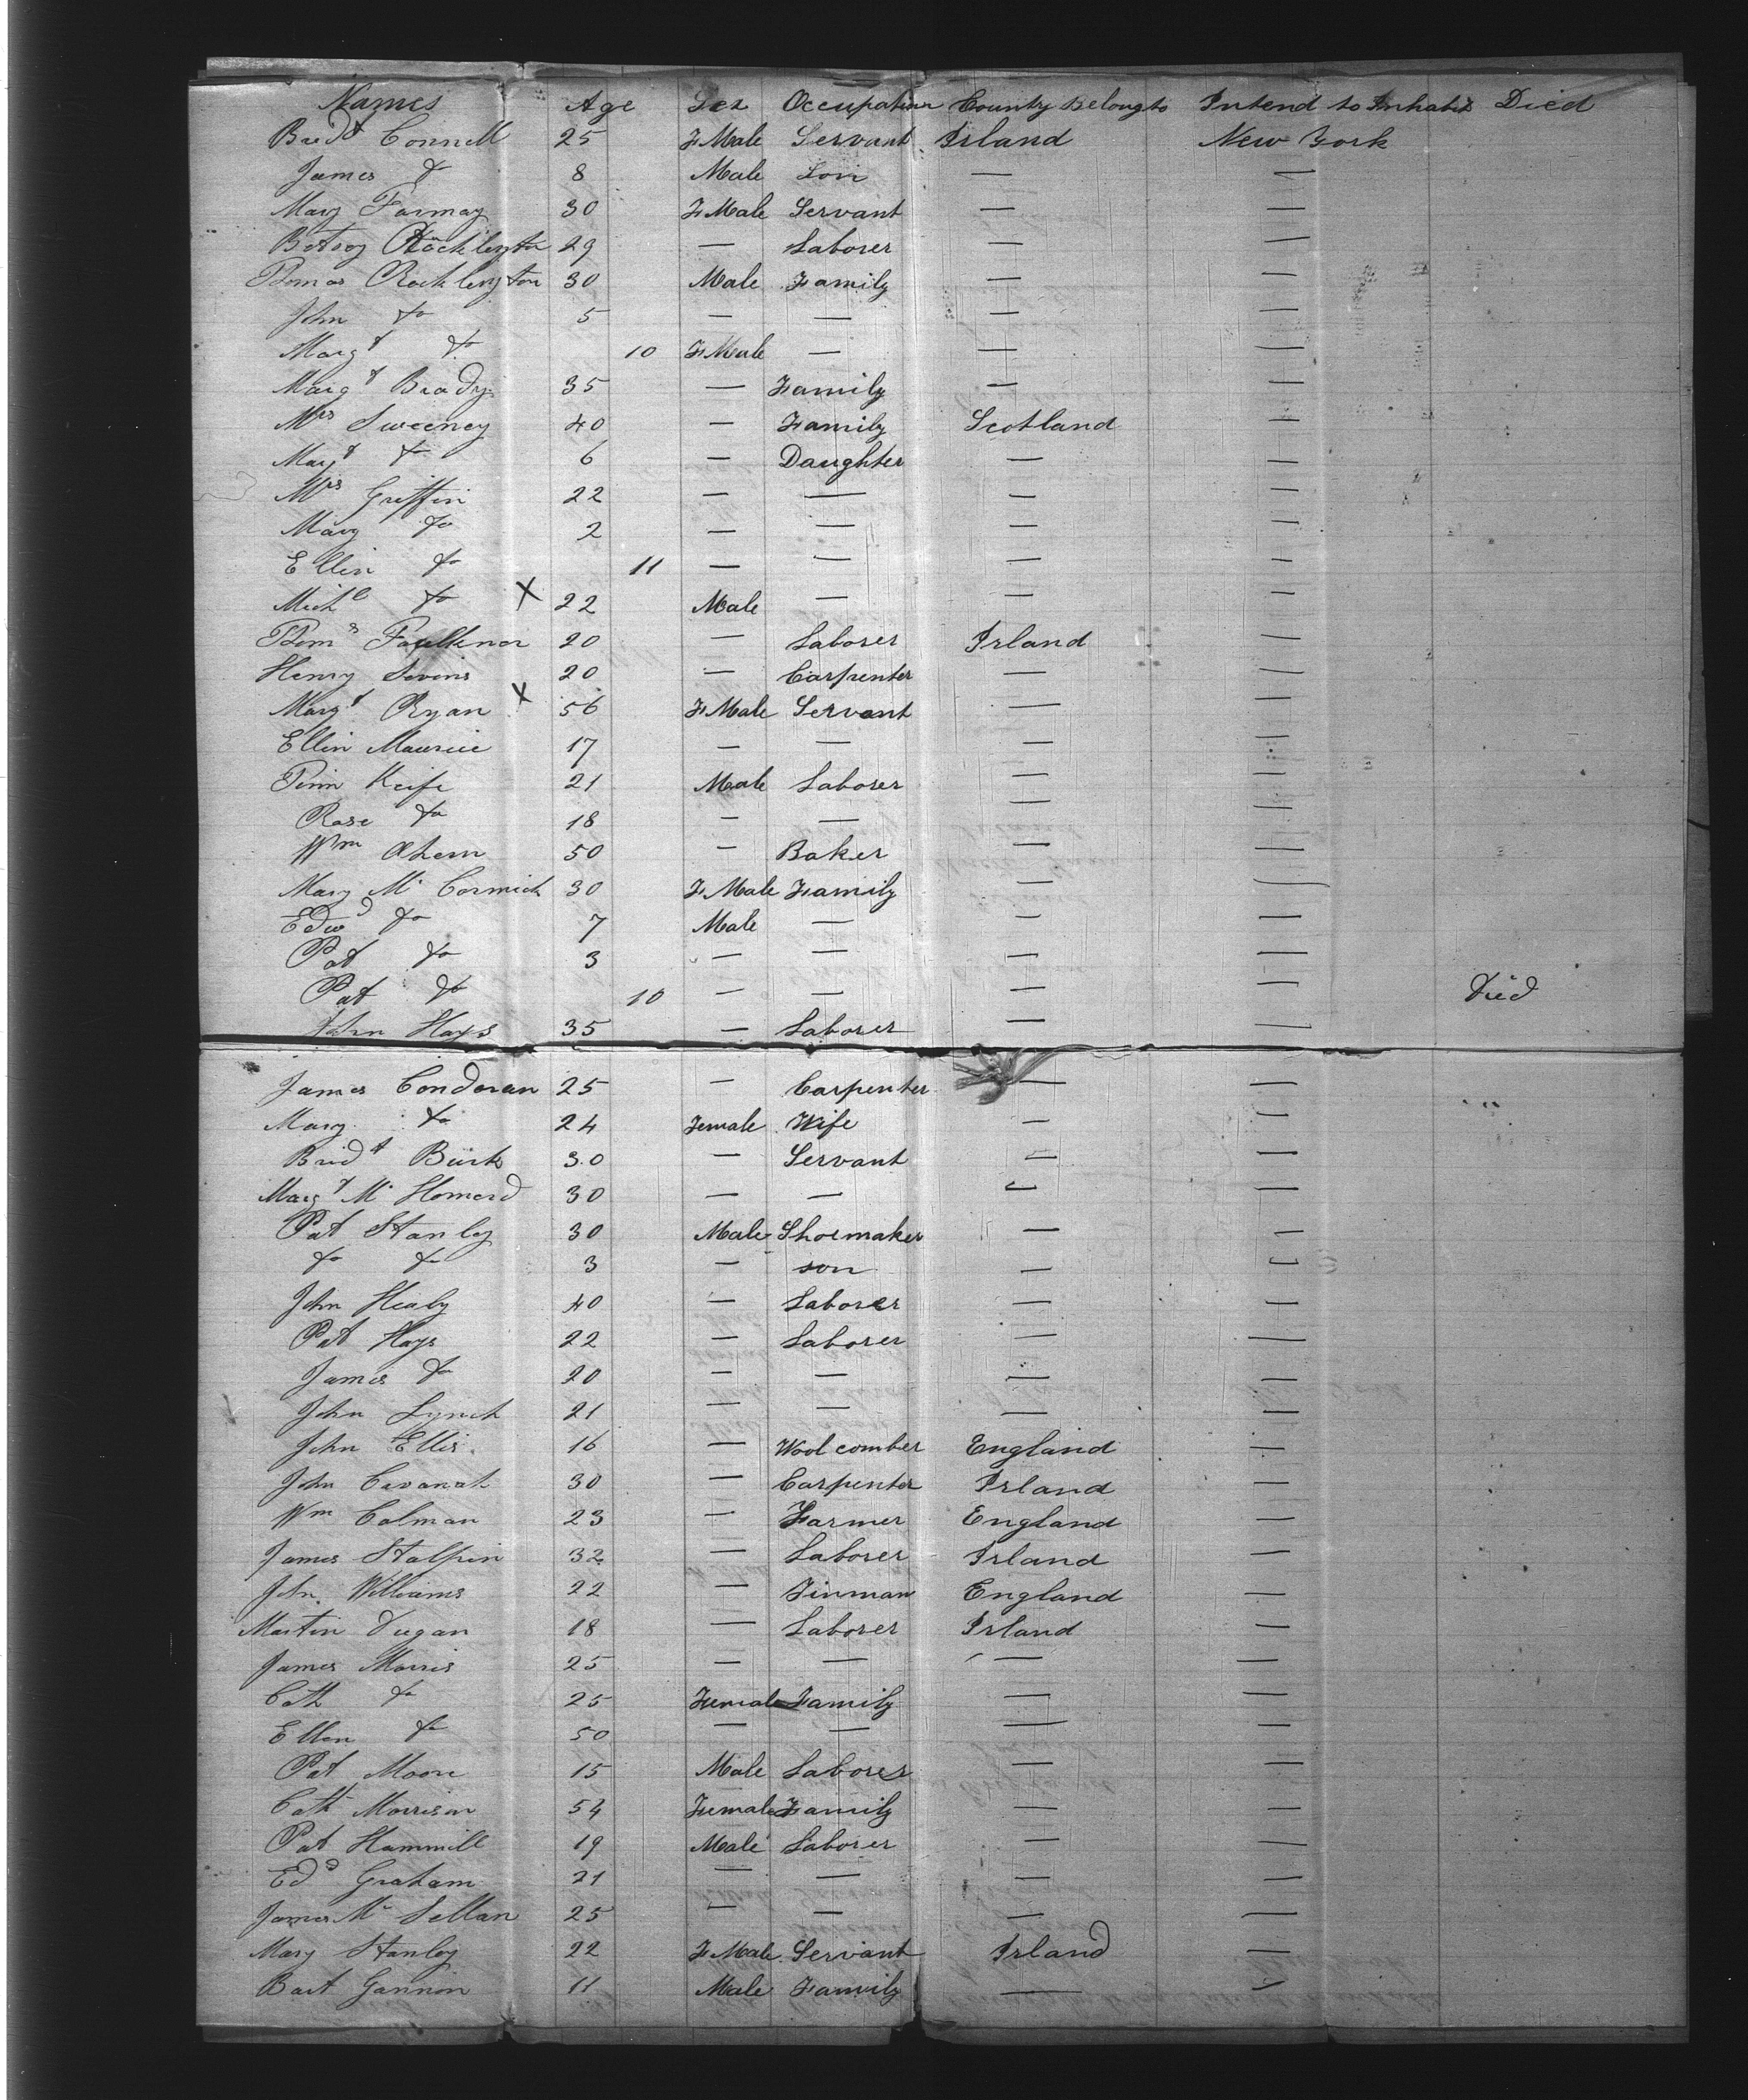 Names Age Sex Occupation County Belongs to Intend to Inhabit Died
Bridt Connell 25 FMale Servant Irland New York
James Do 8 Male Son — —
Mary Farmay 30 FMale Servant — —
Betsey Rocklington 29 — Laborer — —
Thomas Rocklington 30 Male Family — —
John Do 5 — — — —
Margt Do 10 FMale — — —
Margt Brady 35 — Family — —
Mrs Sweeney 40 — Family Scotland —
Margt Do 6 — Daughter — —
Mrs Griffin 22 — — — —
Mary Do 2 — — — —
Ellin Do 11 — — — —
Michl Do X 22 Male — — —
Thoms Faulkner 20 — Laborer Irland —
Henry Sivins 20 — Carpenter — —
Margt Ryan X 56 FMale Servant — —
Ellin Maurice 17 — — — —
Timn Keife 21 Male Laborer — —
Rose Do 18 — — — —
Wm Ahern 50 — Baker — —
Mary Mc Cormick 30 FMale Family — —
Edwd Do 7 Male — — —
Pat Do 3 — — — —
Pat Do 10 — — — — Died
John Hays 35 — Laborer — —
James Condoran 25 — Carpenter — —
Mary Do 24 Female Wife — —
Bridt Burk 30 — Servant — —
Margt Mc Homerd 30 — — — —
Pat Stanley 30 Male Shoemaker — —
Do Do 3 — son — —
John Healy 40 — Laborer — —
Pat Hays 22 — Laborer — —
James Do 20 — — — —
John Lynch 21 — — — —
John Ellis 16 — Wool comber England —
John Cavanah 30 — Carpenter Irland —
Wm Colman 23 — Farmer England —
James Halpin 32 — Laborer Irland —
John Williams 22 — Tinman England —
Martin Dugan 18 — Laborer Irland —
James Morris 25 — — — —
Cath Do 25 Female Family — —
Ellen Do 50 — — — —
Pat Moore 15 Male Laborer — —
Cath Morrison 54 Female Family — —
Pat Hammill 19 Male Laborer — —
Edd Graham 21 — — — —
James Mc Sellan 25 — — — —
Mary Stanley 22 FMale Servant Irland —
Bart Gannon 11 Male Family — —